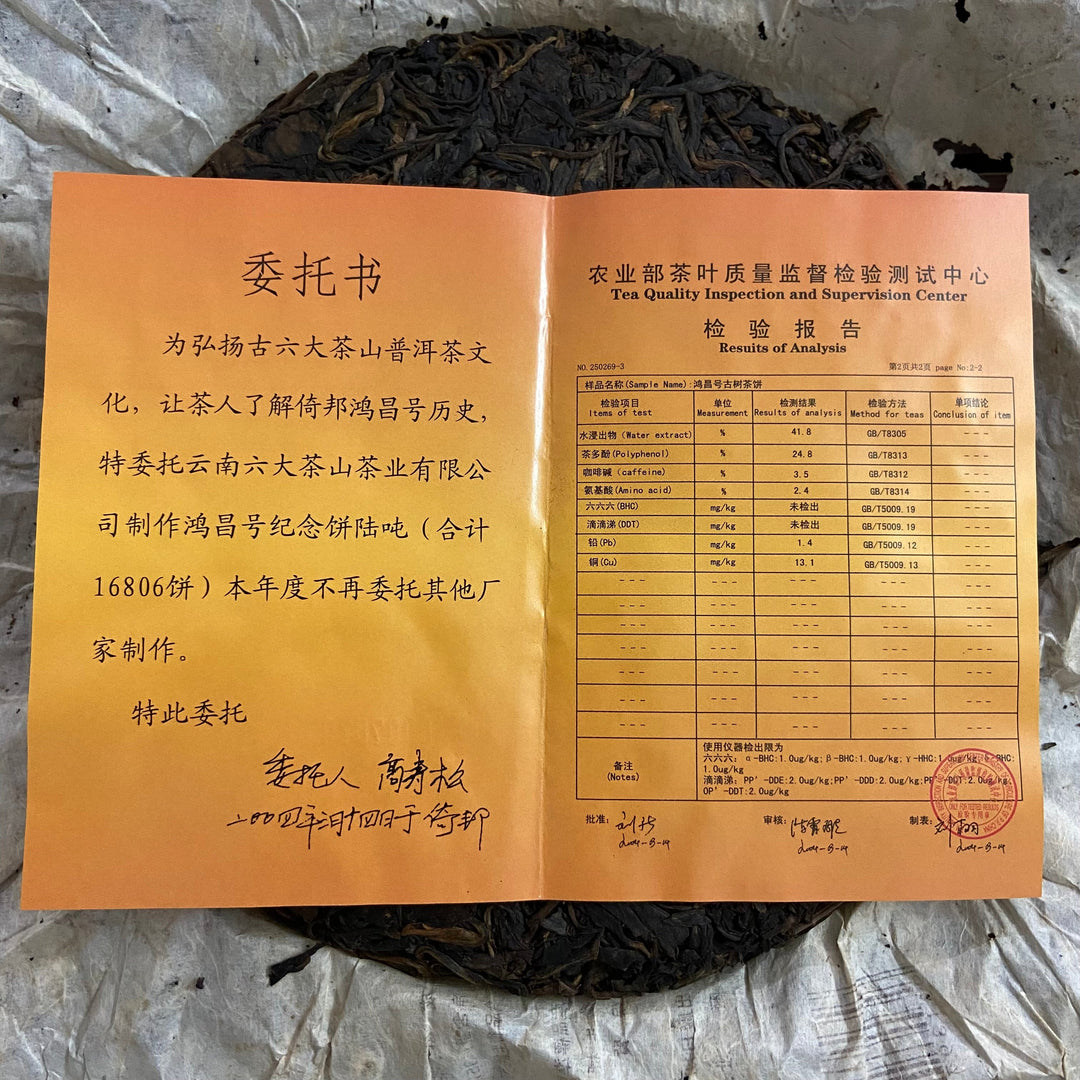 委托书
为弘扬古六大茶山普洱茶文
化，让茶人了解倚邦鸿昌号历史，
特委托云南六大茶山茶业有限公
司制作鸿昌号纪念饼陆吨（合计
16806饼）本年度不再委托其他厂
家制作。
特此委托
委托人 高寿松
二〇〇四年二月十四日于倚邦
农业部茶叶质量监督检验测试中心
Tea Quality Inspection and Supervision Center
检验报告
Results of Analysis
NO.250269-3 第2页共2页 page No:2-2
样品名称(Sample Name):鸿昌号古树茶饼
检验项目 单位 检测结果 检验方法 单项结论
Items of test Measurement Results of analysis Method for teas Conclusion of item
水浸出物 (Water extract) % 41.8 GB/T8305 ---
茶多酚(Polyphenol) % 24.8 GB/T8313 ---
咖啡碱 (caffeine) % 3.5 GB/T8312 ---
氨基酸(Amino acid) % 2.4 GB/T8314 ---
六六六(BHC) mg/kg 未检出 GB/T5009.19 ---
滴滴涕(DDT) mg/kg 未检出 GB/T5009.19 ---
铅(Pb) mg/kg 1.4 GB/T5009.12 ---
铜(Cu) mg/kg 13.1 GB/T5009.13 ---
--- --- --- --- ---
--- --- --- --- ---
--- --- --- --- ---
--- --- --- --- ---
--- --- --- --- ---
--- --- --- --- ---
--- --- --- --- ---
备注
(Notes)
使用仪器检出限为
六六六: α-BHC:1.0ug/kg;β-BHC:1.0ug/kg;γ-HHC:1.0ug/kg; BHC:
1.0ug/kg
滴滴涕: PP'-DDE:2.0ug/kg;PP'-DDD:2.0ug/kg;PP'-DDT:2.0ug/kg;
OP'-DDT:2.0ug/kg
批准: 审核: 制表:
ONLY FOR TESTED RESULTS
检验专用章